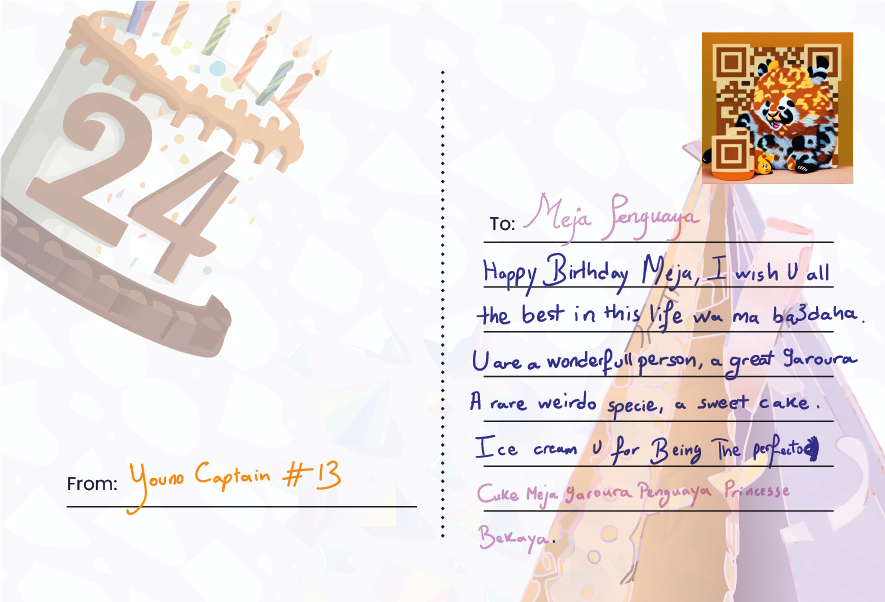 24
To: Meja Penguaya
Happy Birthday Meja, I wish U all
the best in this life wa ma ba3daha.
U are a wonderfull person, a great garoura
A rare weirdo specie, a sweet cake.
Ice cream U for Being The perfecto
Cuke Meja garoura Penguaya Princesse
Bekaya.
From: Youno Captain #13